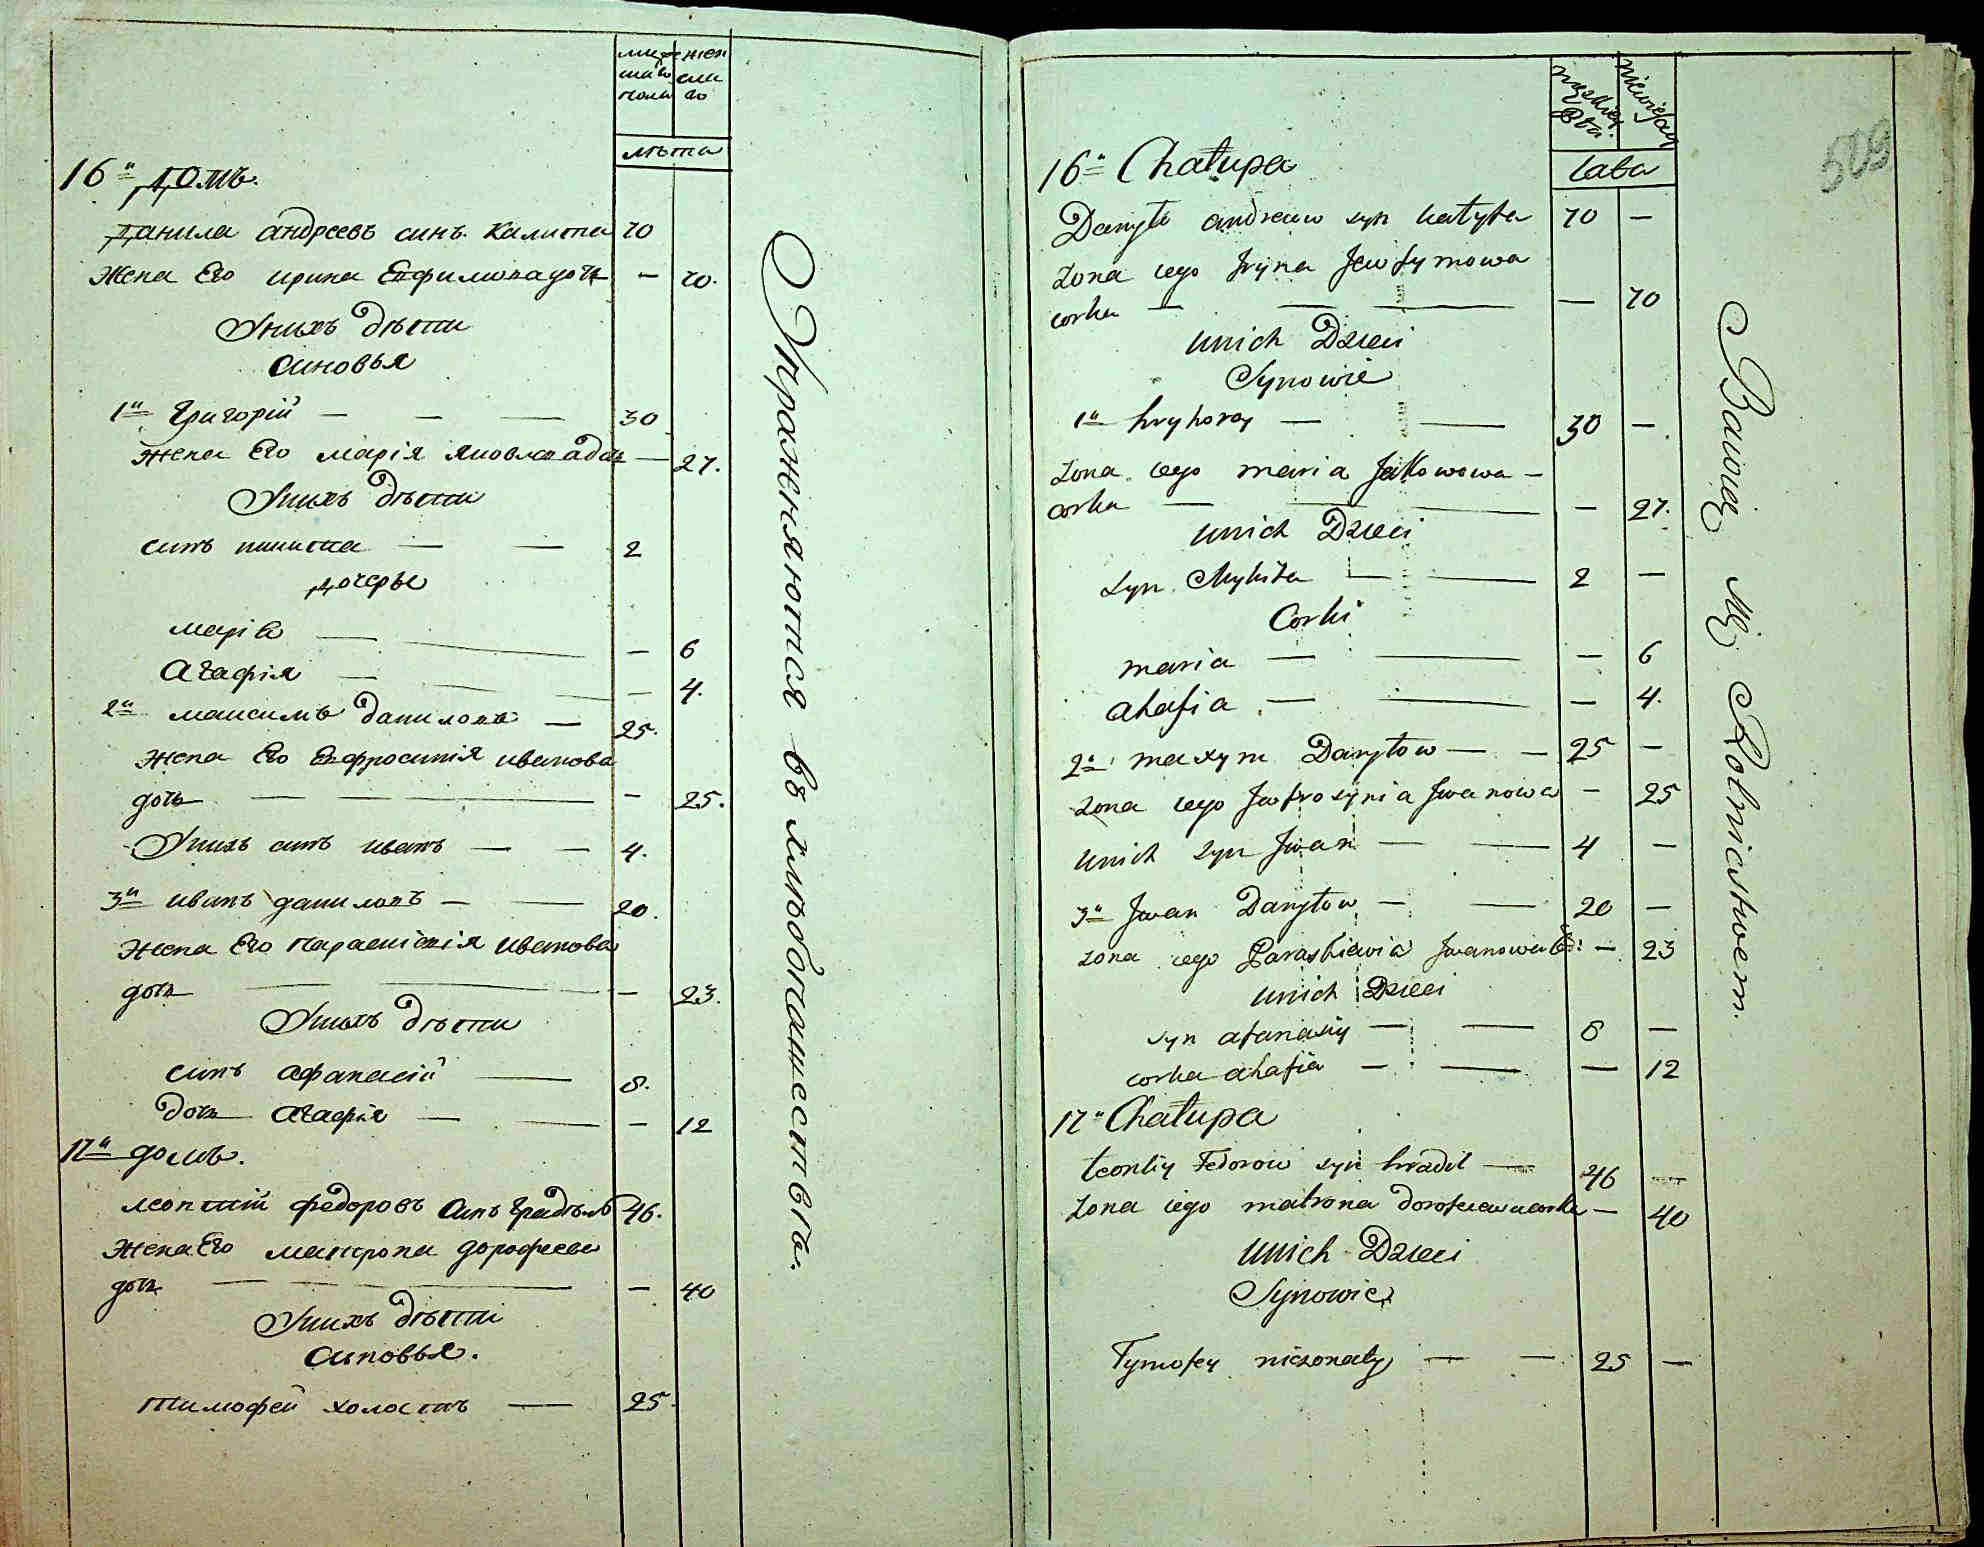 мужеска пола
женска го
лѣта
16й домъ.
Данила андреевъ синъ Калита 70
Жена Его ирина Евфимова дочь — 70.
У нихъ дѣти
синовья
1й Григорій — — — 30
жена Его марія яковлева доч — 27.
У нихъ дѣти
синъ никита — — 2
дочеры
марія — — — 6
Агафія — — — 4.
2й максимъ даниловъ — 25.
жена Его Евфросинія иванова
дочь — — — 25.
У нихъ синъ иванъ — — 4.
3й иванъ даниловъ — — 20.
жена Его параскивія иванова
дочь — — — 23.
У нихъ дѣти
синъ афанасій — 8.
дочь агафія — — — 12
17й домъ.
леонтій федоровъ синъ Градѣлъ 46.
жена Его матрона дорофеева
дочь — — — 40
У нихъ дѣти
синовья.
тимофей холостъ — 25.
Упражняются въ хлѣбопашествѣ.
męzkiey Płci.
niewiesciey
Lata
16a Chałupa
Danyło andreiow syn kałyta 70 —
żona iego Jryna Jewfymowa
corka — — — — 70
unich Dzieci
Synowie
1й hryhorey — — 30 —
żona iego maria Jakowowa —
corka — — — — 27.
unich Dzieci
syn Mykita — — 2 —
Corki
maria — — — 6
ahafia — — — 4.
2й maxym Danyłow — — 25 —
żona iego Jwfrosynia Jwanowa — 25
unich syn Jwan — — 4 —
3й Jwan Danyłow — — 20 —
żona iego Paraskiewia Jwanowa C: — 23
unich Dzieci
syn afanasiy — — 8 —
corka ahafia — — — 12
17a Chałupa
Leontiy Fedorow syn hradil — 46 —
żona iego matrona dorofeiewa corka — 40
unich Dzieci
Synowie
Tymofey nieżonaty — — 25 —
Bawią się Rolnictwem.
509